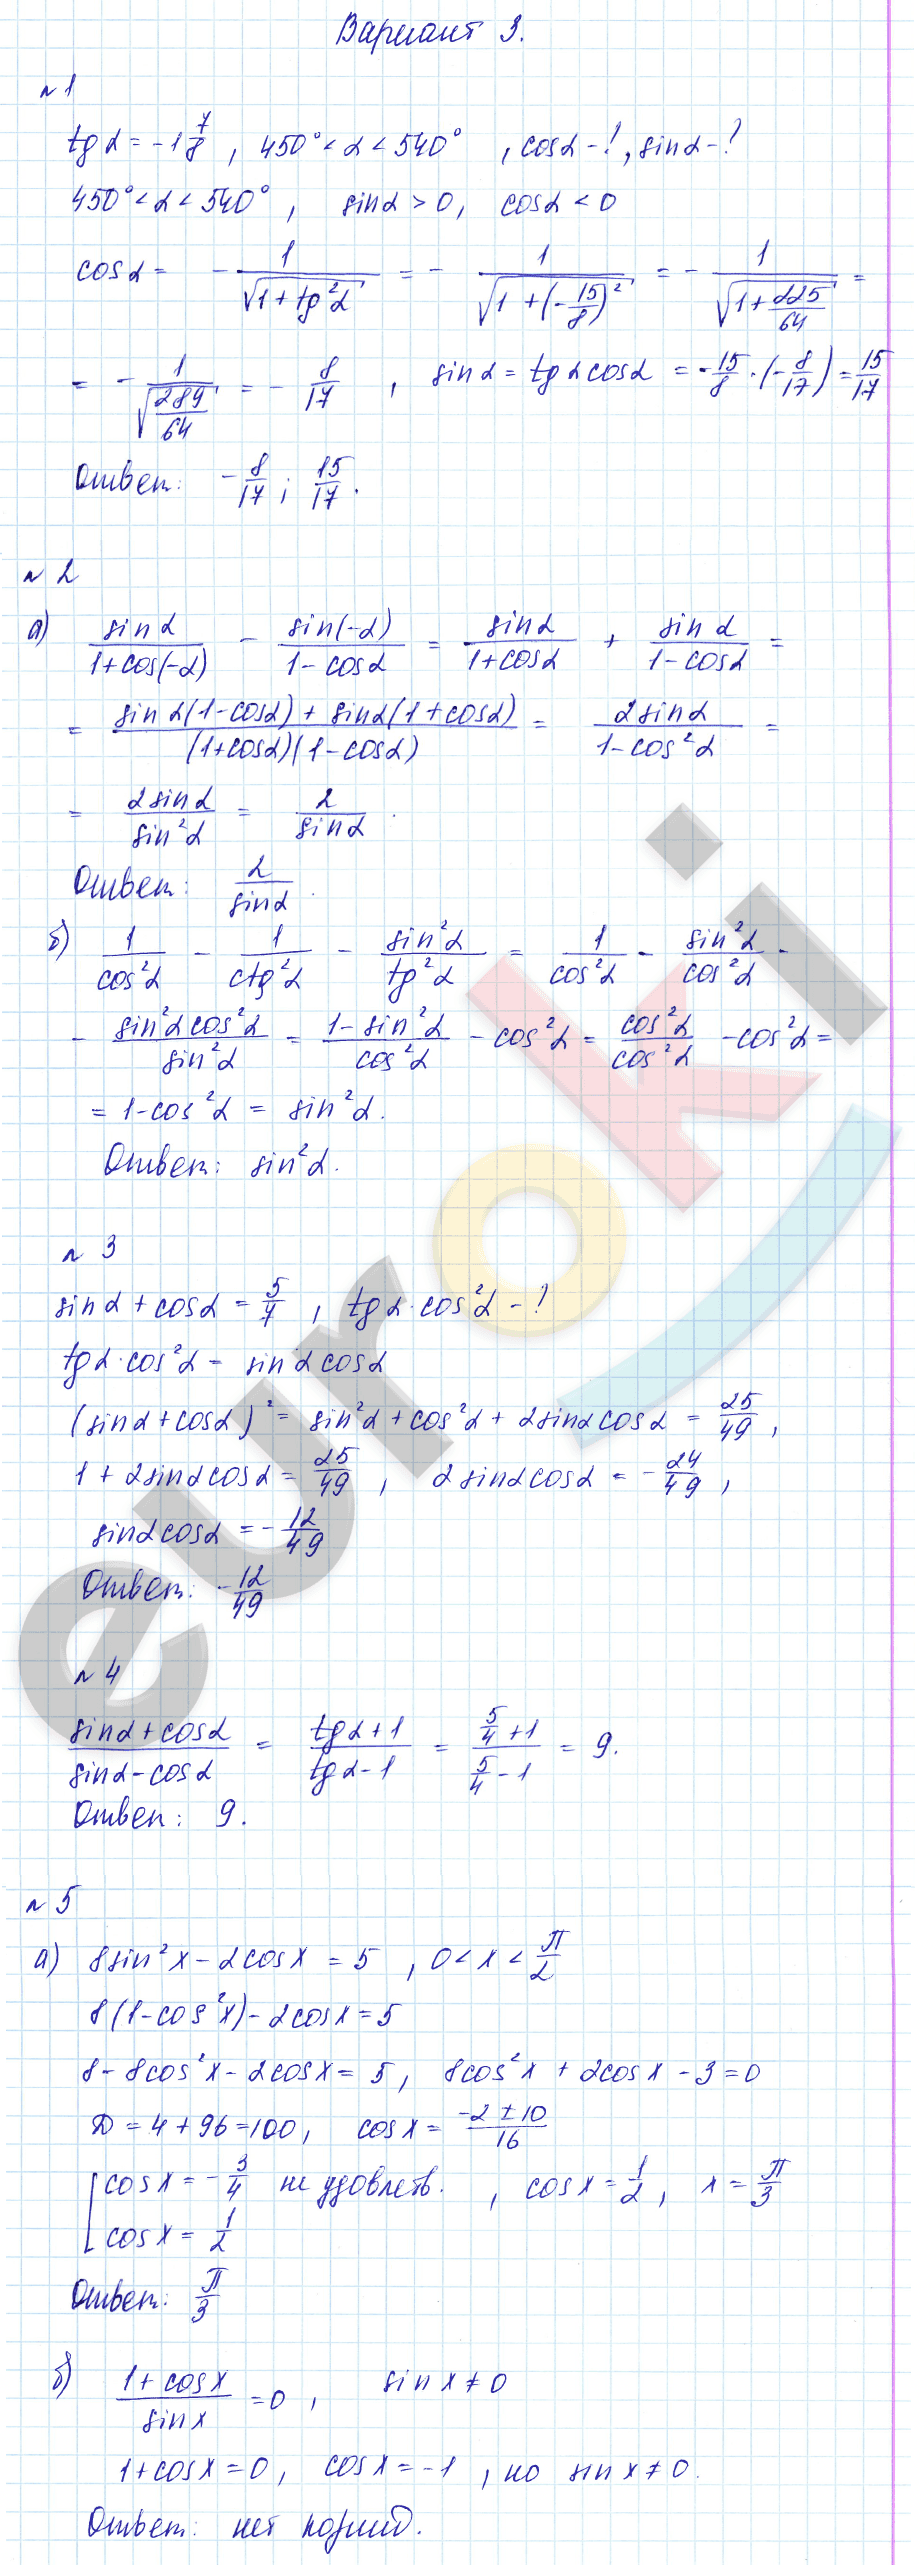 Вариант 3.
№1
tg α = -1 7/8, 450° < α < 540°, cos α - ?, sin α - ?
450° < α < 540°, sin α > 0, cos α < 0
cos α = - 1/√(1 + tg²α) = - 1/√(1 + (-15/8)²) = - 1/√(1 + 225/64) =
= - 1/√(289/64) = - 8/17, sin α = tg α cos α = -15/8 · (-8/17) = 15/17
Ответ: -8/17; 15/17.
№2
а) sin α/(1+cos(-α)) - sin(-α)/(1-cos α) = sin α/(1+cos α) + sin α/(1-cos α) =
= (sin α(1-cos α) + sin α(1+cos α))/((1+cos α)(1-cos α)) = 2 sin α/(1-cos²α) =
= 2 sin α/sin²α = 2/sin α.
Ответ: 2/sin α.
б) 1/cos²α - 1/ctg²α - sin²α/tg²α = 1/cos²α - sin²α/cos²α -
- sin²α cos²α/sin²α = (1-sin²α)/cos²α - cos²α = cos²α/cos²α - cos²α =
= 1-cos²α = sin²α.
Ответ: sin²α.
№3
sin α + cos α = 5/7, tg α · cos²α - ?
tg α · cos²α = sin α cos α
(sin α + cos α)² = sin²α + cos²α + 2 sin α cos α = 25/49,
1 + 2 sin α cos α = 25/49, 2 sin α cos α = -24/49,
sin α cos α = -12/49
Ответ: -12/49
№4
(sin α + cos α)/(sin α - cos α) = (tg α + 1)/(tg α - 1) = (5/4 + 1)/(5/4 - 1) = 9.
Ответ: 9.
№5
а) 8 sin²x - 2 cos x = 5, 0 < x < π/2
8(1-cos²x) - 2 cos x = 5
8 - 8 cos²x - 2 cos x = 5, 8 cos²x + 2 cos x - 3 = 0
D = 4 + 96 = 100, cos x = (-2 ± 10)/16
[cos x = -3/4 не удовлетв., cos x = 1/2, x = π/3
cos x = 1/2
Ответ: π/3
б) (1 + cos x)/sin x = 0, sin x ≠ 0
1 + cos x = 0, cos x = -1, но sin x ≠ 0.
Ответ: нет корней.
euroki